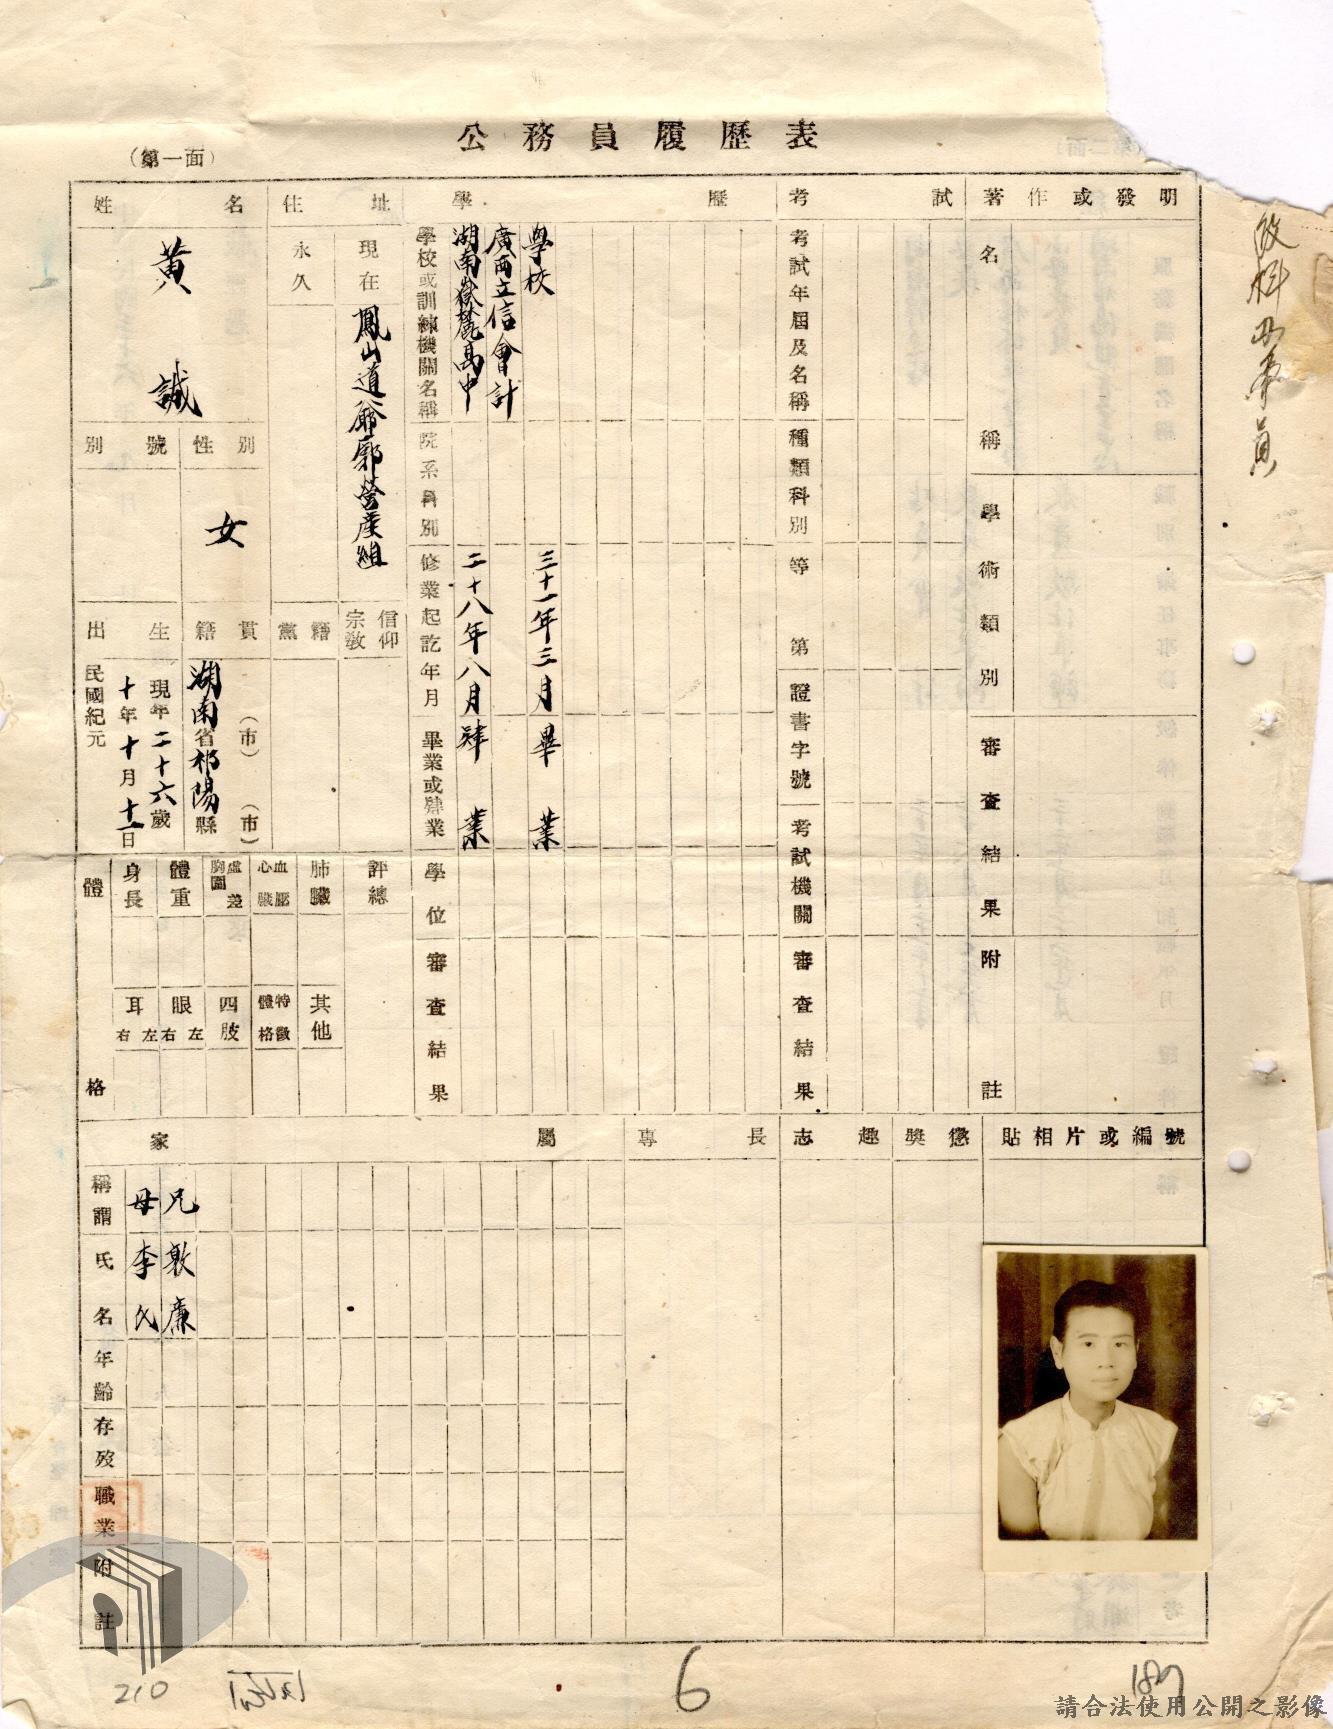 公務員履歷表
（第一面）
姓名
黃誠
別號
性別
女
出生
民國紀元
十年十月十一日
現年二十六歲
籍貫
湖南省祁陽縣
（市）
（市）
住址
永久
現在
鳳山道爺廍營産組
黨籍
宗教信仰
體格
身長
體重
胸圍虛差
心臟血壓
肺臟
評總
耳
右左
眼
右左
四肢
體格特徵
其他
學歷
學校或訓練機關名稱
湖南嶽麓高中
廣西立信會計
學校
院系科別
修業起訖年月
二十八年八月
三十一年三月
畢業或肄業
肄業
畢業
學位
審查結果
考試
考試年屆及名稱
種類科別
等第
證書字號
考試機關
審查結果
著作或發明
名稱
學術類別
審查結果
附註
家屬
稱謂
母
兄
氏名
李氏
敦廉
年齡
存歿
職業
附註
專長
志趣
獎懲
貼相片或編號
210
6
187
請合法使用公開之影像